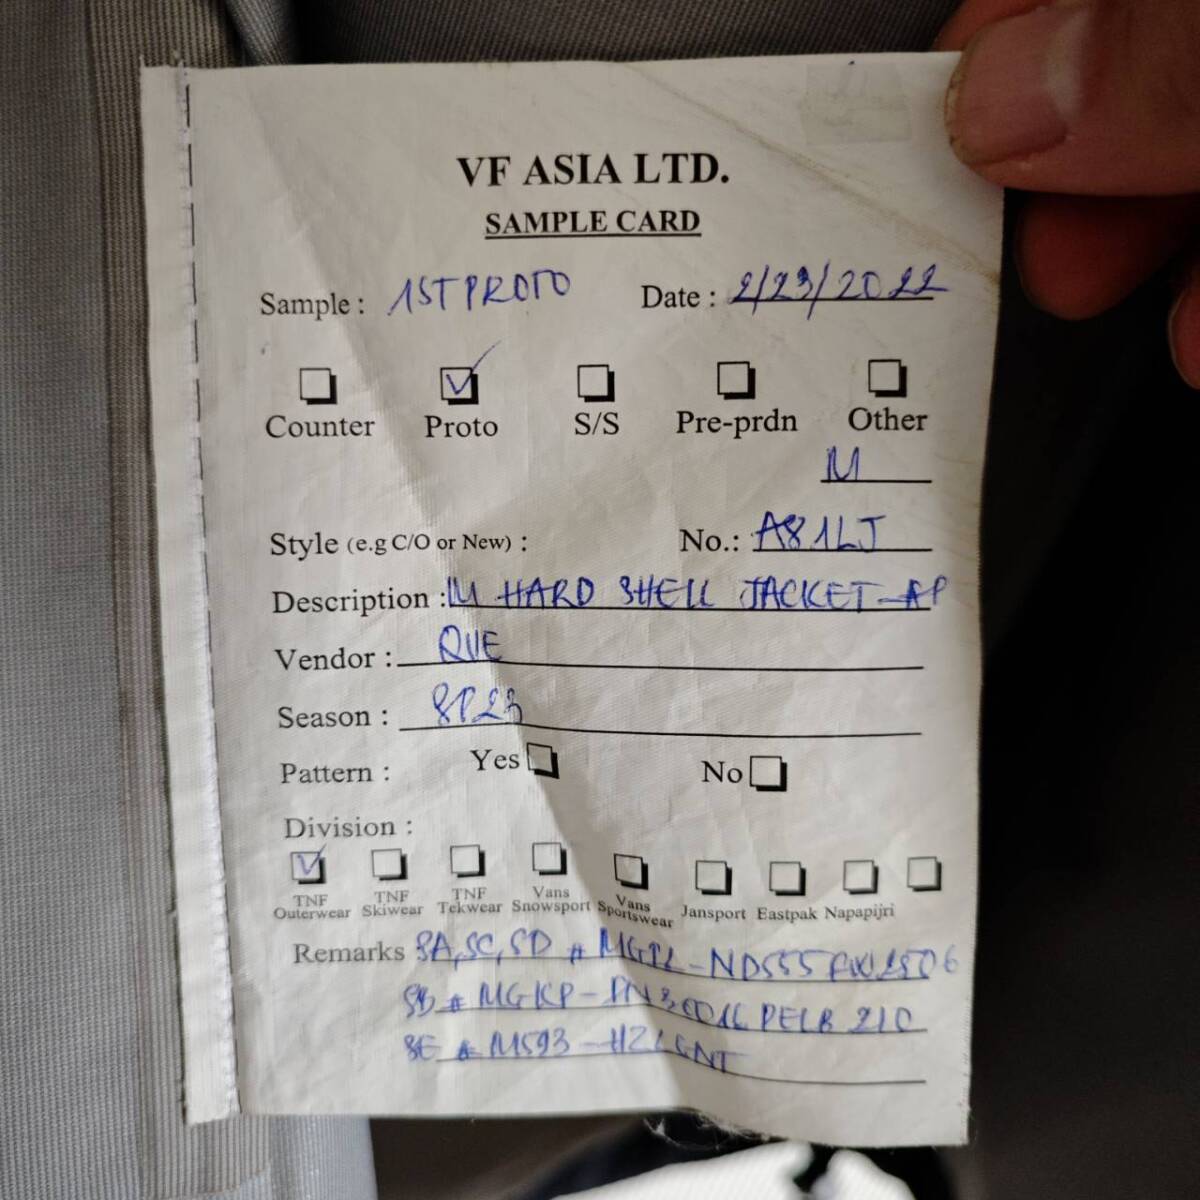 VF ASIA LTD.
SAMPLE CARD
Sample : 1ST PROTO Date : 2/23/2022
Counter Proto S/S Pre-prdn Other
M
Style (e.g C/O or New) : No.: A81LJ
Description : M HARD SHELL JACKET-AP
Vendor : QVE
Season : SP23
Pattern : Yes No
Division :
TNF Outerwear TNF Skiwear TNF Tekwear Vans Snowsport Vans Sportswear Jansport Eastpak Napapijri
Remarks SA,SC,SD #
SB # 210
SE # M593